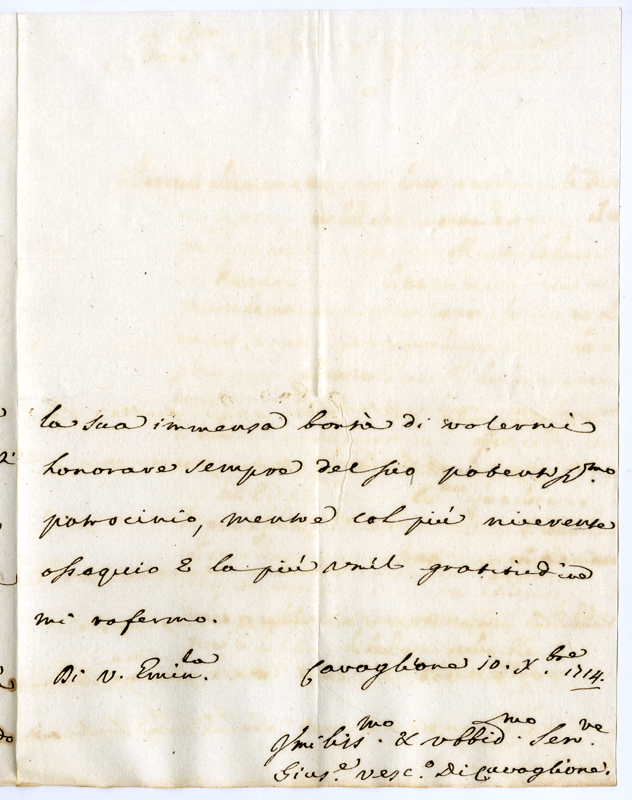 la sua immensa bontà di volermi
honorare sempre del suo potentiss.mo
patrocinio, mentre col più riverente
ossequio e la più umil gratitudine
mi rafermo.
Di V. Emin.ta Cavaglione 10. X.bre 1714.
Humiliss.mo & ubbid.mo Ser.ve
Gius.e Vesc.o Di Cavaglione.